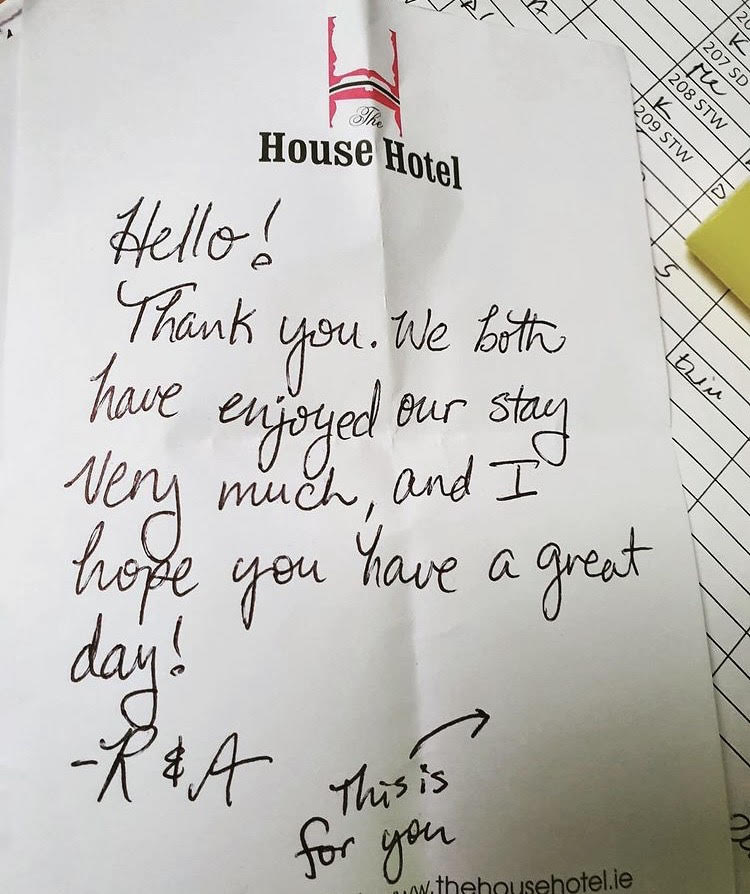 The
House Hotel
Hello!
Thank you. We both
have enjoyed our stay
very much, and I
hope you have a great
day!
-R & A
This is
for you
www.thehousehotel.ie
207 SD
208 STW
209 STW
K